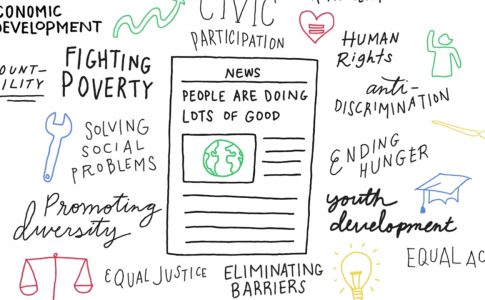 CONOMIC
DEVELOPMENT
FIGHTING
POVERTY
OUNT-
ILITY
SOLVING
SOCIAL
PROBLEMS
Promoting
diversity
EQUAL JUSTICE
CIVIC
PARTICIPATION
NEWS
PEOPLE ARE DOING
LOTS OF GOOD
ELIMINATING
BARRIERS
HUMAN
Rights
anti-
DISCRIMINATION
ENDING
HUNGER
youth
development
EQUAL AC